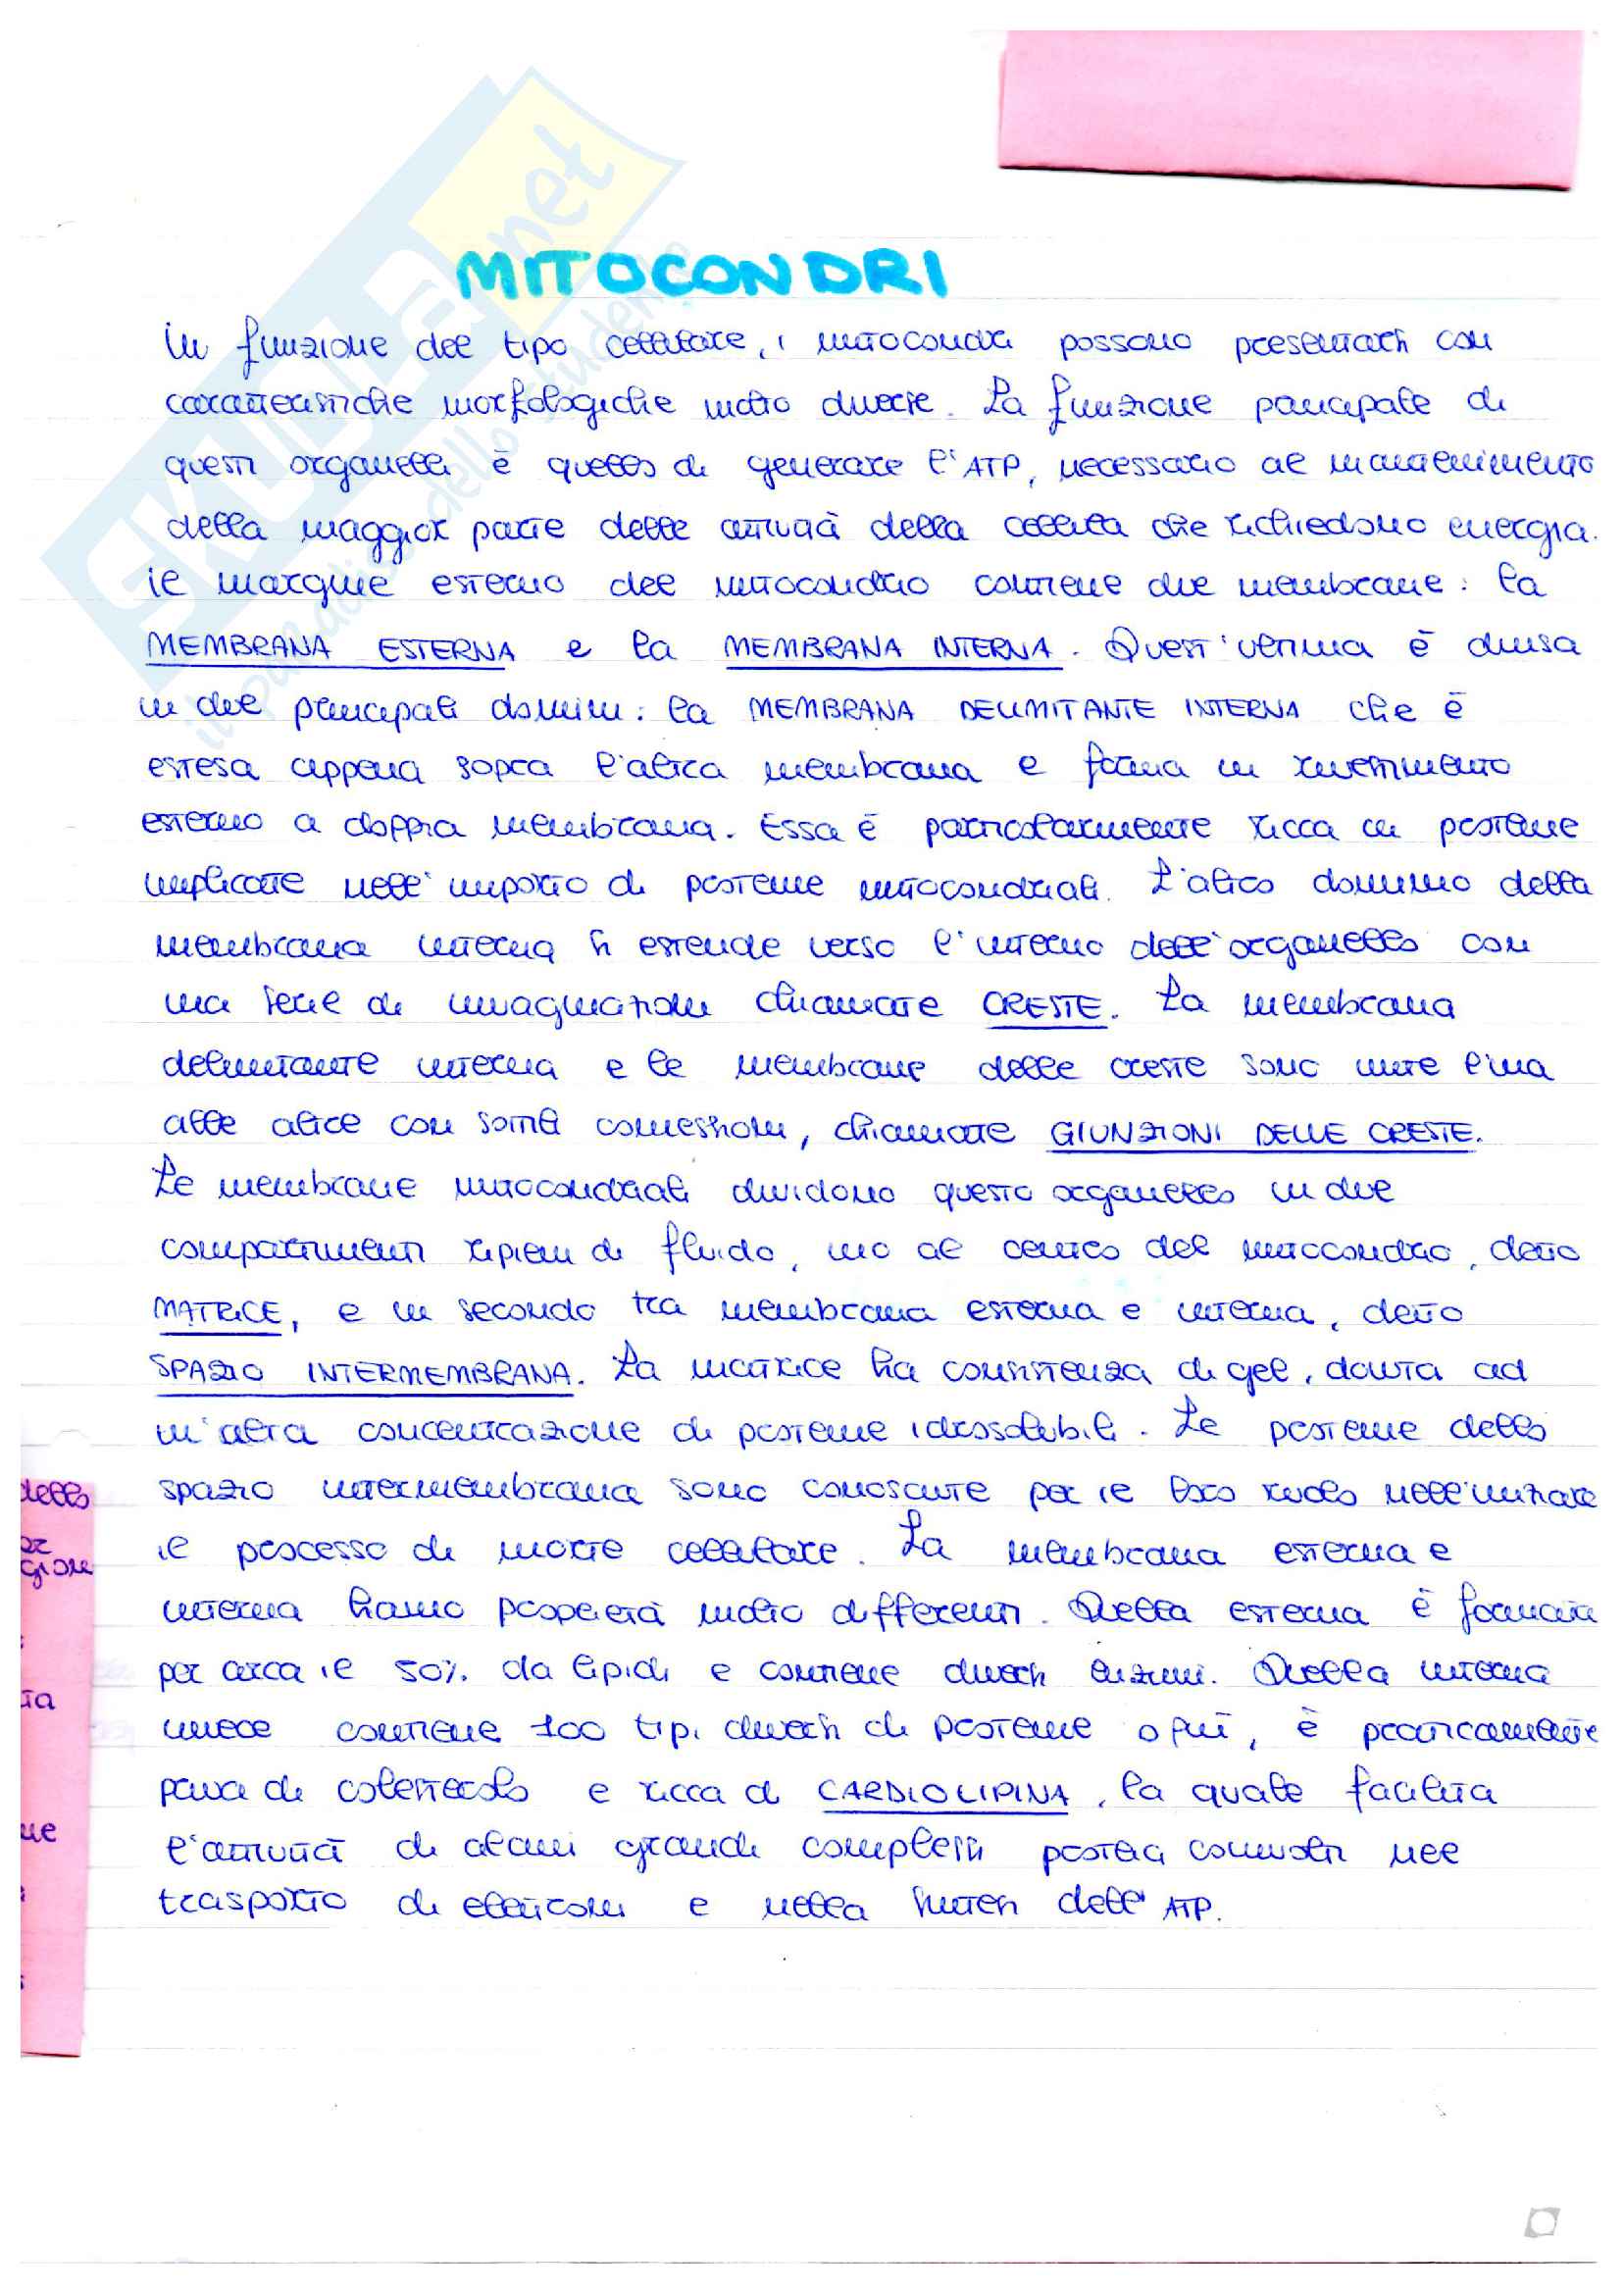 SKUOLA.net
il paradiso dello studente
MITOCONDRI
In funzione del tipo cellulare, i mitocondri possono presentarsi con
caratteristiche morfologiche molto diverse. La funzione principale di
questi organelli è quello di generare l'ATP, necessario al mantenimento
della maggior parte delle attività della cellula che richiedono energia.
Il margine esterno del mitocondrio contiene due membrane: la
MEMBRANA ESTERNA e la MEMBRANA INTERNA. Quest'ultima è divisa
in due principali domini: la MEMBRANA DELIMITANTE INTERNA che è
estesa appena sopra l'altra membrana e forma un rivestimento
esterno a doppia membrana. Essa è particolarmente ricca in proteine
implicate nell'importo di proteine mitocondriali. L'altro dominio della
membrana interna si estende verso l'interno dell'organello con
una serie di invaginazioni chiamate CRESTE. La membrana
delimitante interna e le membrane delle creste sono unite l'una
alle altre con sottili connessioni, chiamate GIUNZIONI DELLE CRESTE.
Le membrane mitocondriali dividono questo organello in due
compartimenti ripieni di fluido, uno al centro del mitocondrio, detto
MATRICE, e un secondo tra membrana esterna e interna, detto
SPAZIO INTERMEMBRANA. La matrice ha consistenza di gel, dovuta ad
un'alta concentrazione di proteine idrosolubili. Le proteine dello
spazio intermembrana sono conosciute per il loro ruolo nell'iniziare
il processo di morte cellulare. La membrana esterna e
interna hanno proprietà molto differenti. Quella esterna è formata
per circa il 50% da lipidi e contiene diversi enzimi. Quella interna
invece contiene 100 tipi diversi di proteine o più, è praticamente
priva di colesterolo e ricca di CARDIOLIPINA, la quale facilita
l'attività di alcuni grandi complessi proteici coinvolti nel
trasporto di elettroni e nella sintesi dell'ATP.
dello